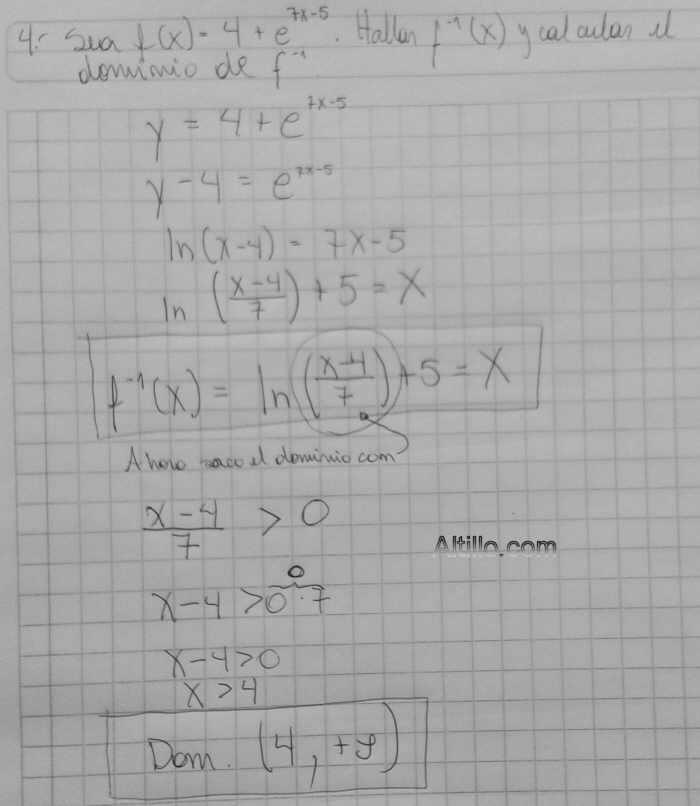 4.- Sea f(x) = 4 + e^7x-5. Hallar f^-1(x) y calcular el
dominio de f^-1
y = 4 + e^7x-5
y - 4 = e^7x-5
ln(x-4) = 7x-5
ln (x-4/7) + 5 = x
f^-1(x) = ln (x-4/7) + 5 = x
Ahora saco el dominio com
x-4/7 > 0
0
x-4 > 0·7
x-4>0
x>4
Dom. (4, +∞)
Altillo.com